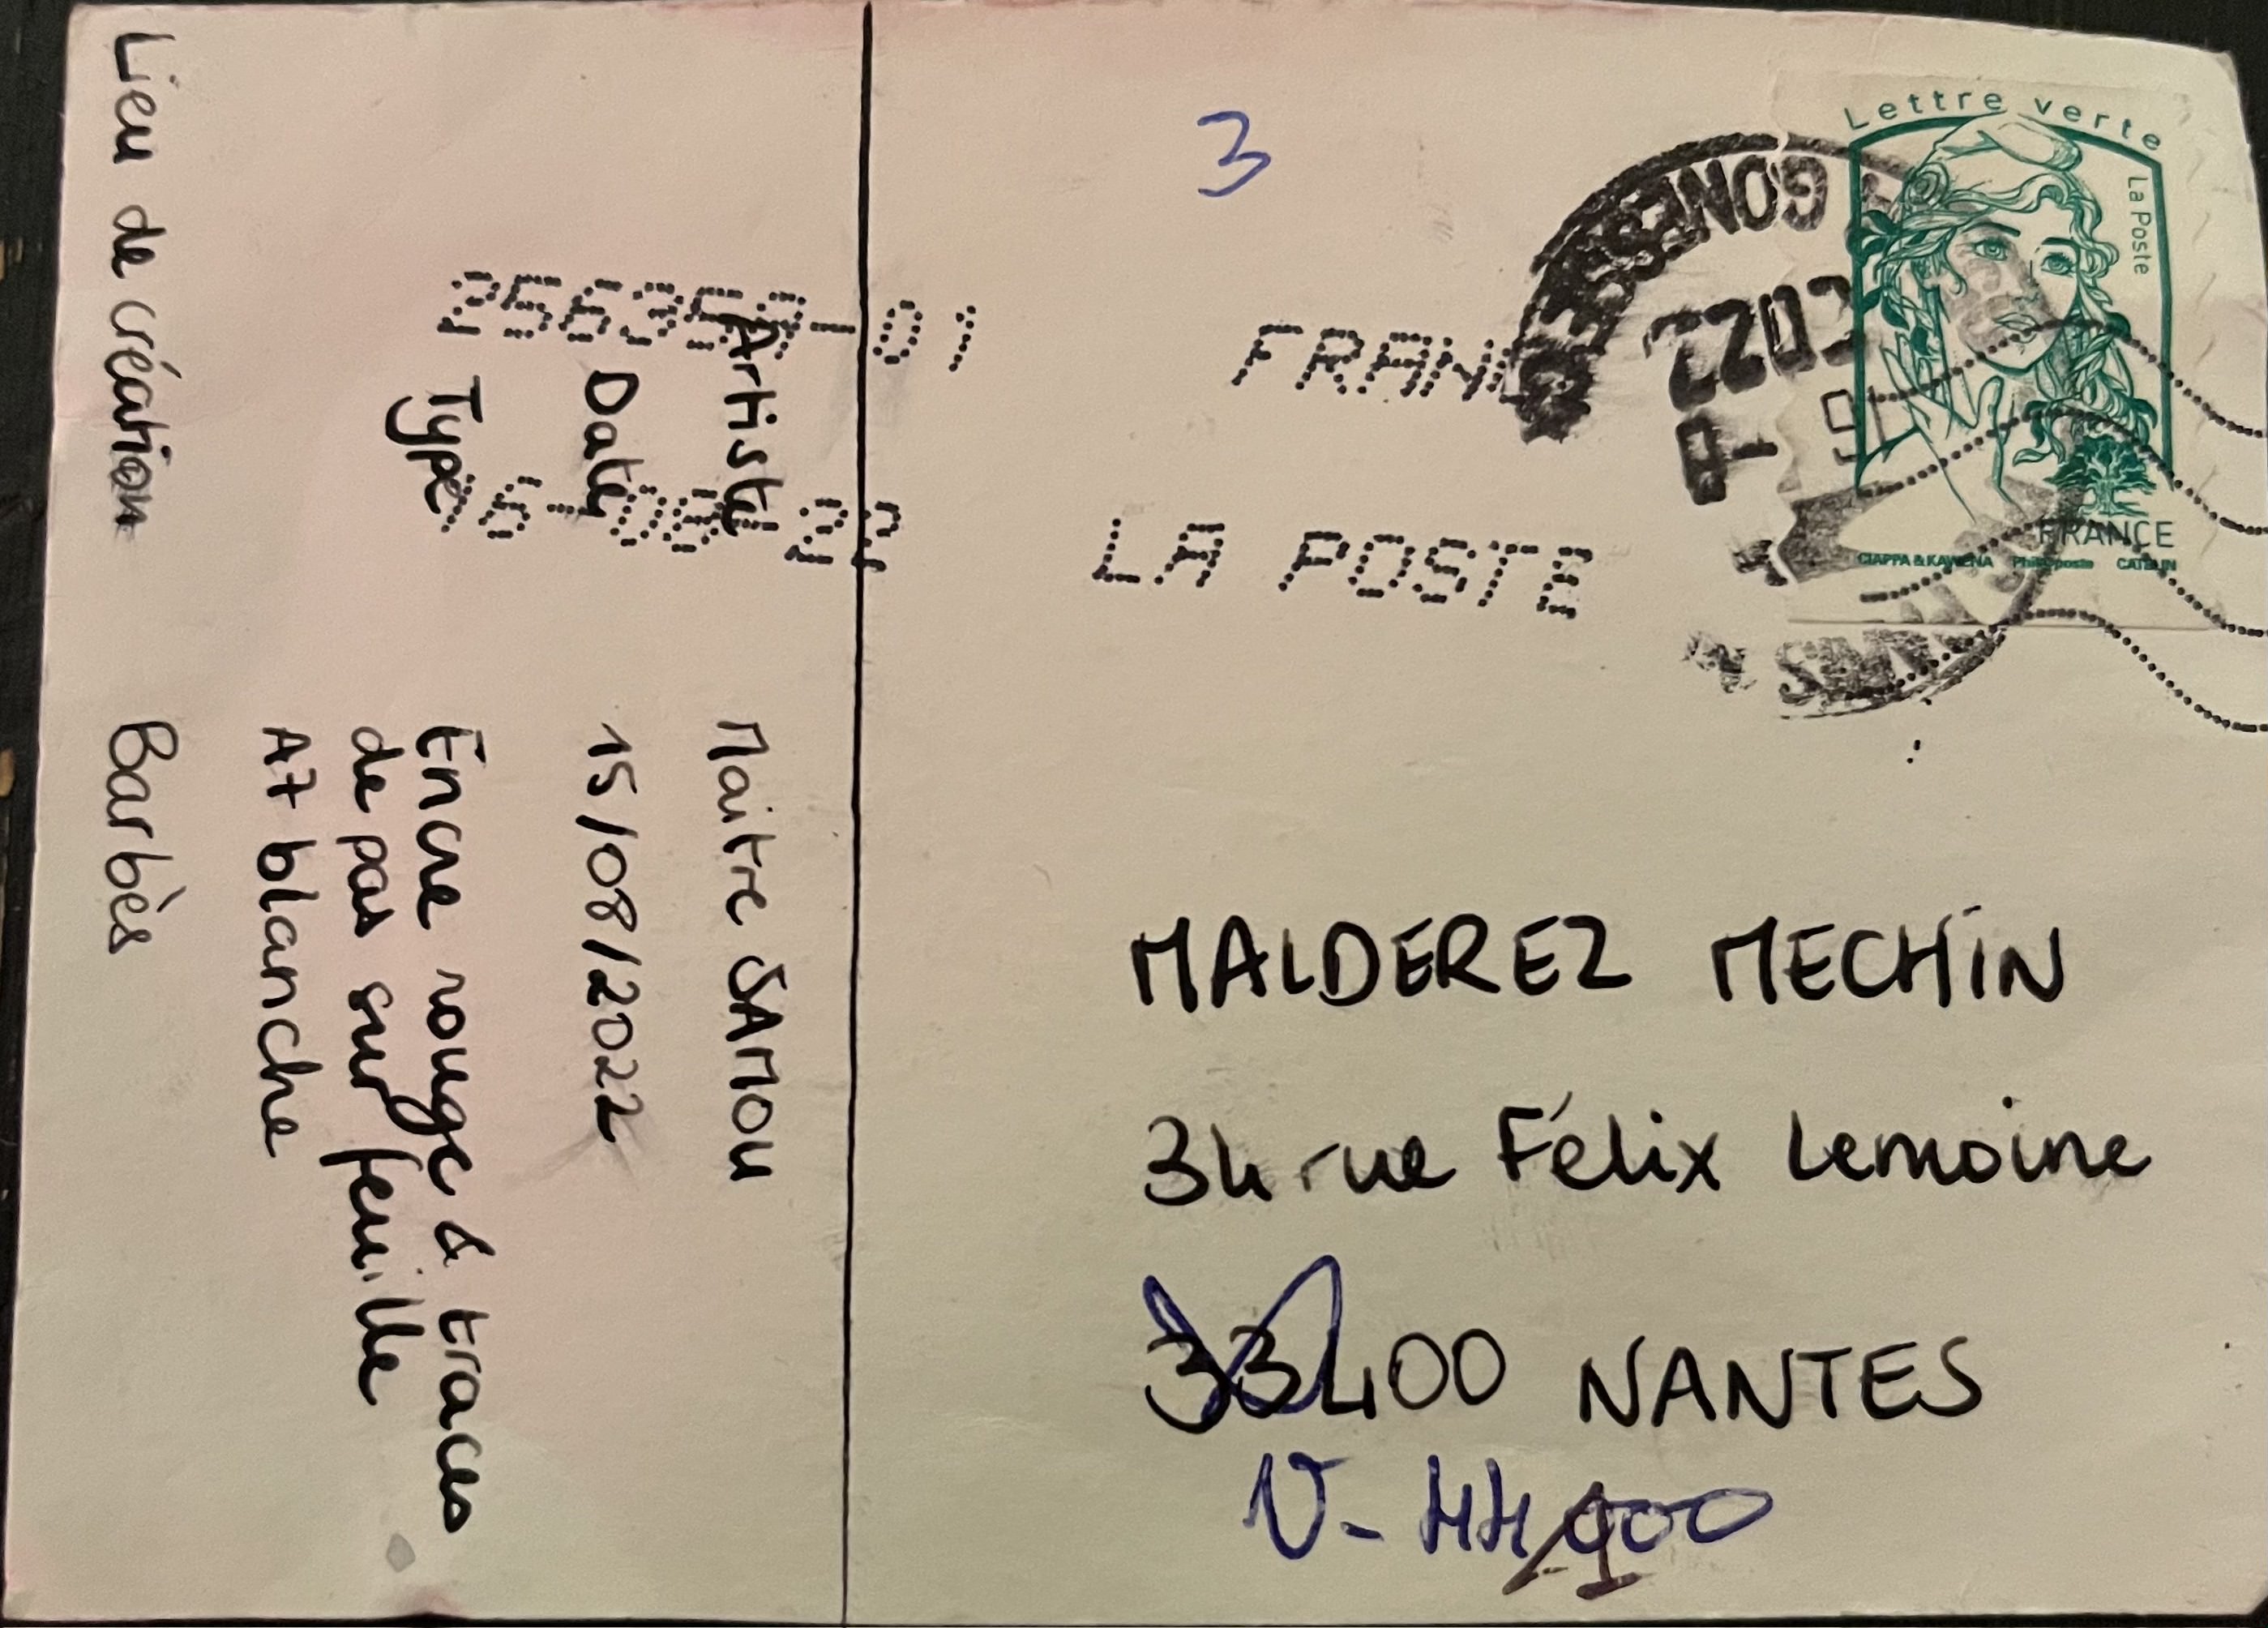 Artiste Maitre SAMOU
Date 15/08/2022
Type Encre rouge à traces
de pas sur feuille
A7 blanche
Lieu de création Barbès
3
25635A-01 FRANCE
16-08-22 LA POSTE
GONESSE
2022
Lettre verte
La Poste
FRANCE
CIAPPA & KAWENA Phil@poste CATELIN
MALDEREZ MECHIN
34 rue Félix Lemoine
33400 NANTES
V- 44100